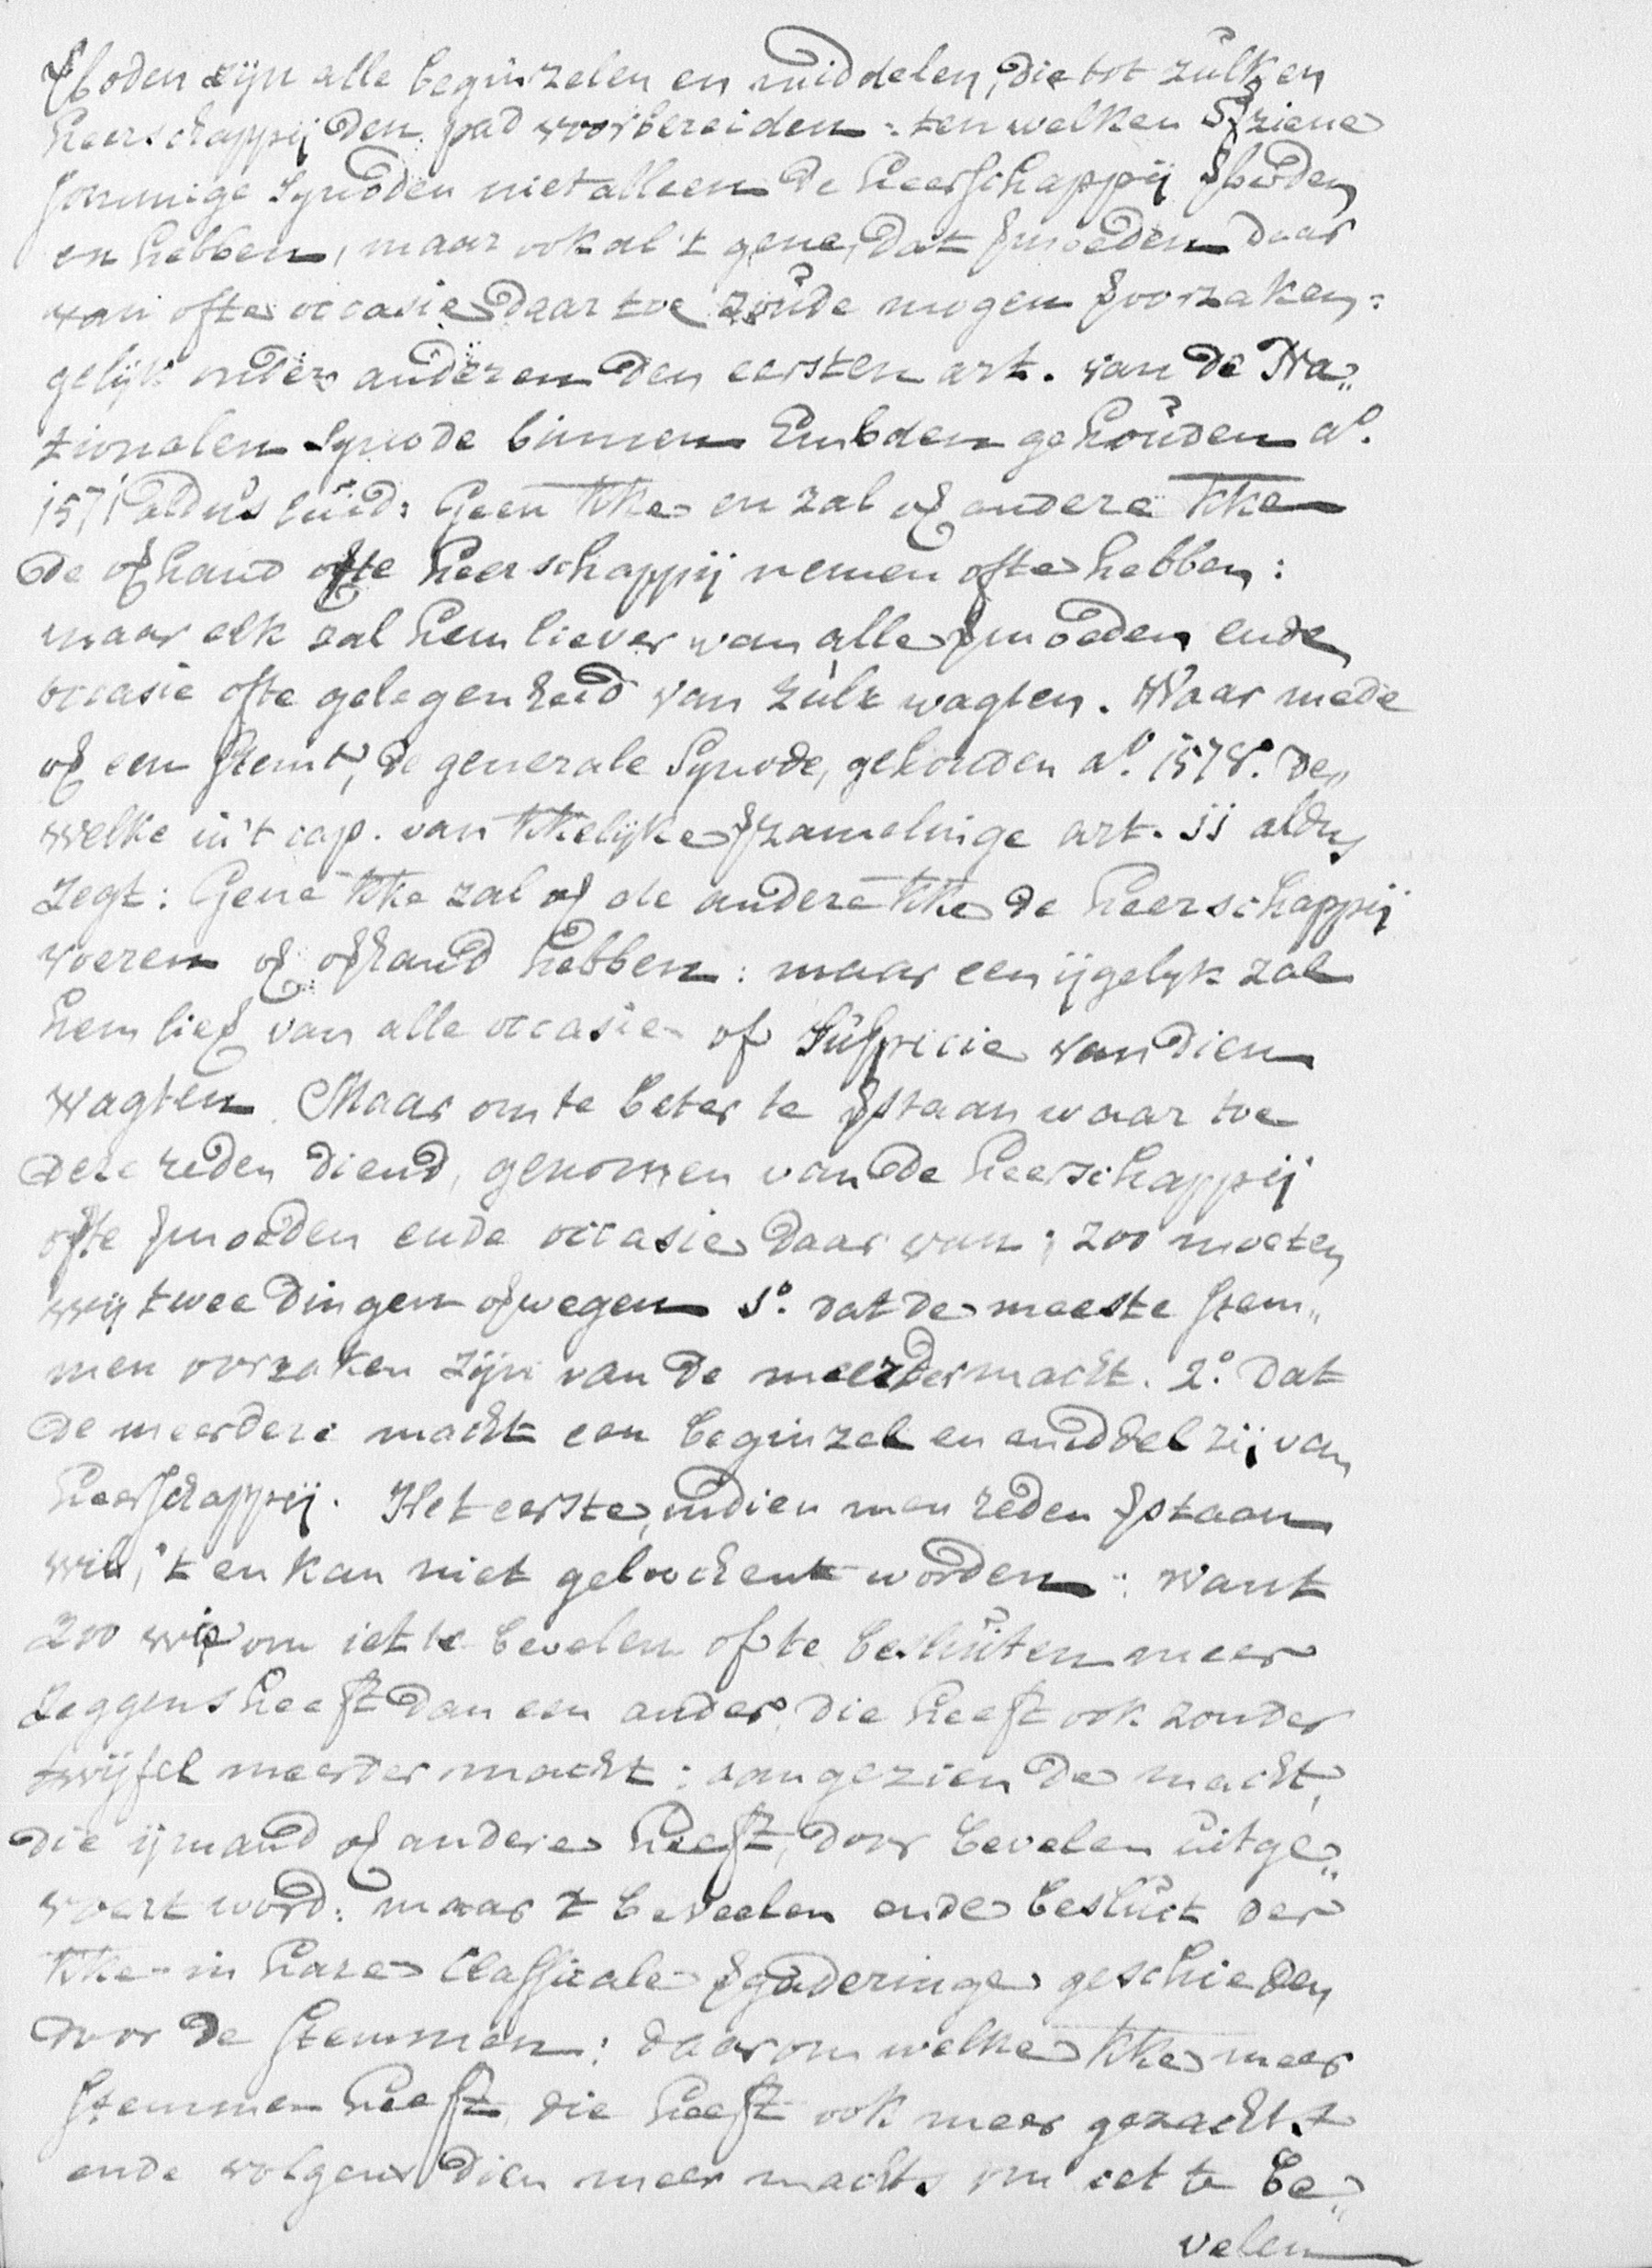 Vboden zijn alle beginzelen en middelen, die tot zulken
heerschappij den pad voorbereiden: ten welken Vziene
sommige Synoden niet alleen de heerschappij Vboden
en hebben, maar ook al 't gene, dat Vmoeden daar
van ofte occasie daar toe zoude mogen Voorzaken:
gelijk onder anderen den eersten art. van de Na„
tionalen Synode binnen Embden gehouden a°.
1571 aldus luid: Geen kke en zal oV andere kke
de oVhand ofte heerschappij nemen ofte hebben:
maar elk zal hem liever van alle Vmoeden ende
occasie ofte gelegenheid van zulx wagten. Waar mede
oV een stemt, de generale Synode, gehouden a°. 1578. de„
welke in 't cap. van kkelijke Vzamelinge art. 11 aldus
zegt: Gene kke zal oV de andere kke de heerschappij
voeren oV oVhand hebben: maar een ijgelijk zal
hem lieV van alle occasie of suspicie van dien
wagten. Maar om te beter te Vstaan waar toe
deze reden diend, genomen van de heerschappij
ofte Vmoeden ende occasie daar van; zoo moeten
wij twee dingen oVwegen 1°. dat de meeste stem„
men oorzaken zijn van de meerder macht. 2°. Dat
de meerdere macht een beginzel en middel zij van
heerschappij. Het eerste, indien men reden Vstaan
wil, 't en kan niet geloochent worden: want
zoo wie om iet te bevelen ofte besluiten meer
zeggens heeft dan een ander, die heeft ook zonder
twijfel meerder macht: aangezien de macht,
die ijmand oV andere heeft, door bevelen uitge„
voert word: maar 't beveelen ende besluit der
kke in hare Classicale Vgaderinge geschieden
door de stemmen: daarom welke kke meer
stemmen heeft, die heeft ook meer gezacht
ende volgens dien meer machts om iet te be„
velen